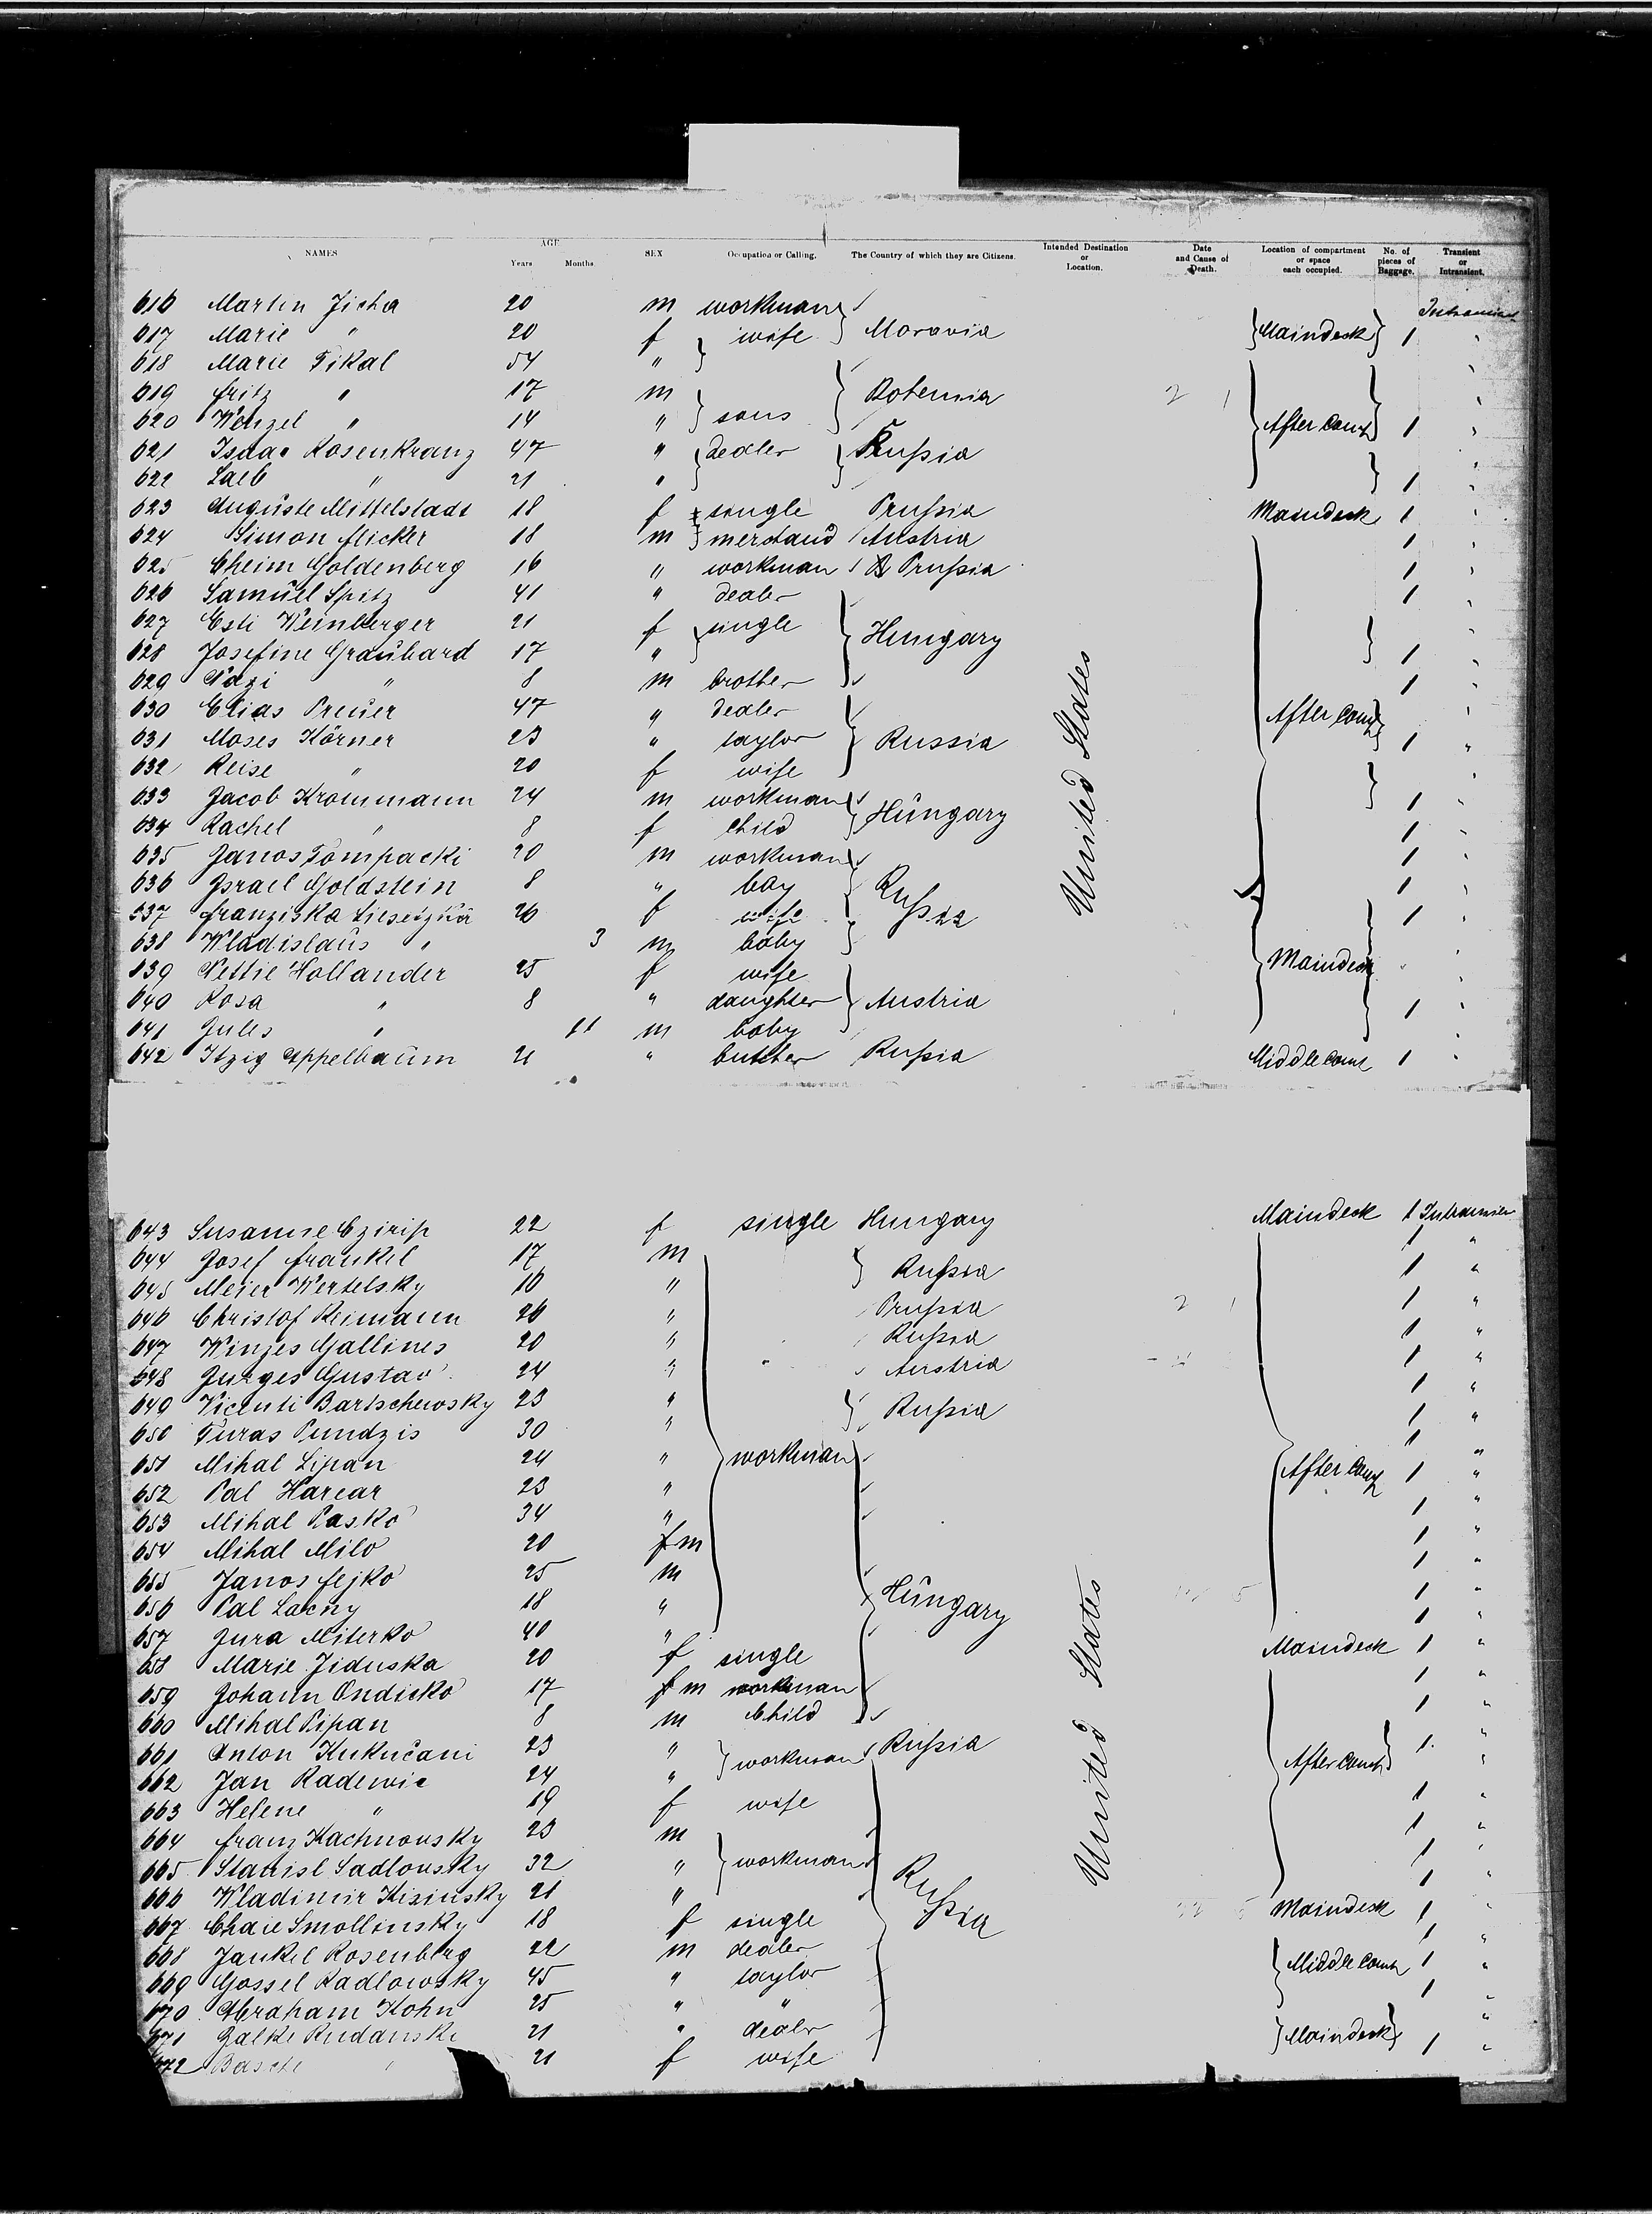 NAMES AGE Years Months SEX Occupation or Calling. The Country of which they are Citizens. Intended Destination or Location. Date and Cause of Death. Location of compartment or space each occupied. No. of pieces of Baggage. Transient or Intransient.
616 Martin Jicha 20 m workman
617 Marie " 20 f wife Moravia Maindeck 1 "
618 Marie Fikal 54 "
619 Fritz " 17 m Bohemia 2 1
620 Wenzel " 14 " sons After Comt 1 "
621 Isaac Rosenkranz 47 " dealer Rußia
622 Laib " 21 " 1 "
623 Auguste Mittelstadt 18 f single Prußia Maindeck 1 "
624 Simon Flicker 18 m Austria 1 "
625 Cheim Goldenberg 16 " workman Prußia 1 "
626 Samuel Spitz 41 " dealer 1 "
627 Esti Weinberger 21 f single Hungary
628 Josefine Graubard 17 " 1 "
629 " 8 m brother 1 "
630 Elias Preuer 47 " dealer After Comt
631 Moses Körner 23 " taylor Russia 1 "
632 Reise " 20 f wife
633 Jacob Krommann 24 m workman Hungary 1 "
634 Rachel " 8 f child 1 "
635 Janos Tompacki 20 m workman 1 "
636 Israel Goldstein 8 " boy Rußia 1 "
637 Franziska 26 f wife 1 "
638 Wladislaus " 3 m baby
639 Nettie Hollander 25 f wife Maindeck
640 Rosa " 8 " daughter Austria 1 "
641 Jules " 11 m baby
642 Itzig Appelbaum 21 " butcher Rußia Middle Comt 1 "
United States
643 Susanne Czirip 22 f single Hungary Maindeck 1
644 Josef Frankel 17 m Rußia 1 "
645 Meier Wertelsky 16 " 1 "
646 Christof Reimann 26 " Prußia 2 1 1 "
647 Winzes Gallines 20 " Rußia 1 "
648 Jurges Gustav 24 " Austria 1 "
649 Vicenti Bartschewsky 23 " Rußia 1 "
650 Turas Pundzis 30 " 1 "
651 Mihal Lipan 24 " workman After Comt 1 "
652 Pal Harcar 23 " 1 "
653 Mihal Pasko 34 " 1 "
654 Mihal Milo 20 m 1 "
655 Janos Fejko 25 m Hungary 1 "
656 Pal Lacny 18 " 1 "
657 Jura Miterko 40 " 1 "
658 Marie Jiduska 20 f single Maindeck 1 "
659 Johann Ondicko 17 m workman 1 "
660 Mihal Pipan 8 m Child 1 "
661 Anton Kukučani 23 " workman Rußia After Comt 1 "
662 Jan Radewic 24 "
663 Helene " 19 f wife 1 "
664 Franz Kachnousky 23 m 1 "
665 Stanisl Sadlousky 32 " workman Rußia 1 "
666 Wladimir Kisinsky 21 " 1 "
667 Chaie Smollinsky 18 f single Maindeck 1 "
668 Jankel Rosenberg 22 m dealer 1 "
669 Gossel Radlowsky 45 " taylor Middle Comt 1 "
670 Abraham Kohn 25 " " 1 "
671 21 " dealer Maindeck
672 Basche " 21 f wife 1 "
United States